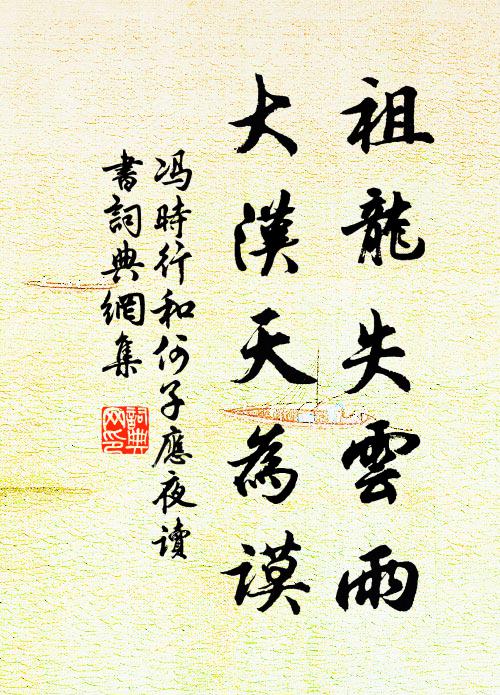 祖龍失雲雨
大漢天為謨
冯時行和何子應夜读
書詞典網集
詞典網印